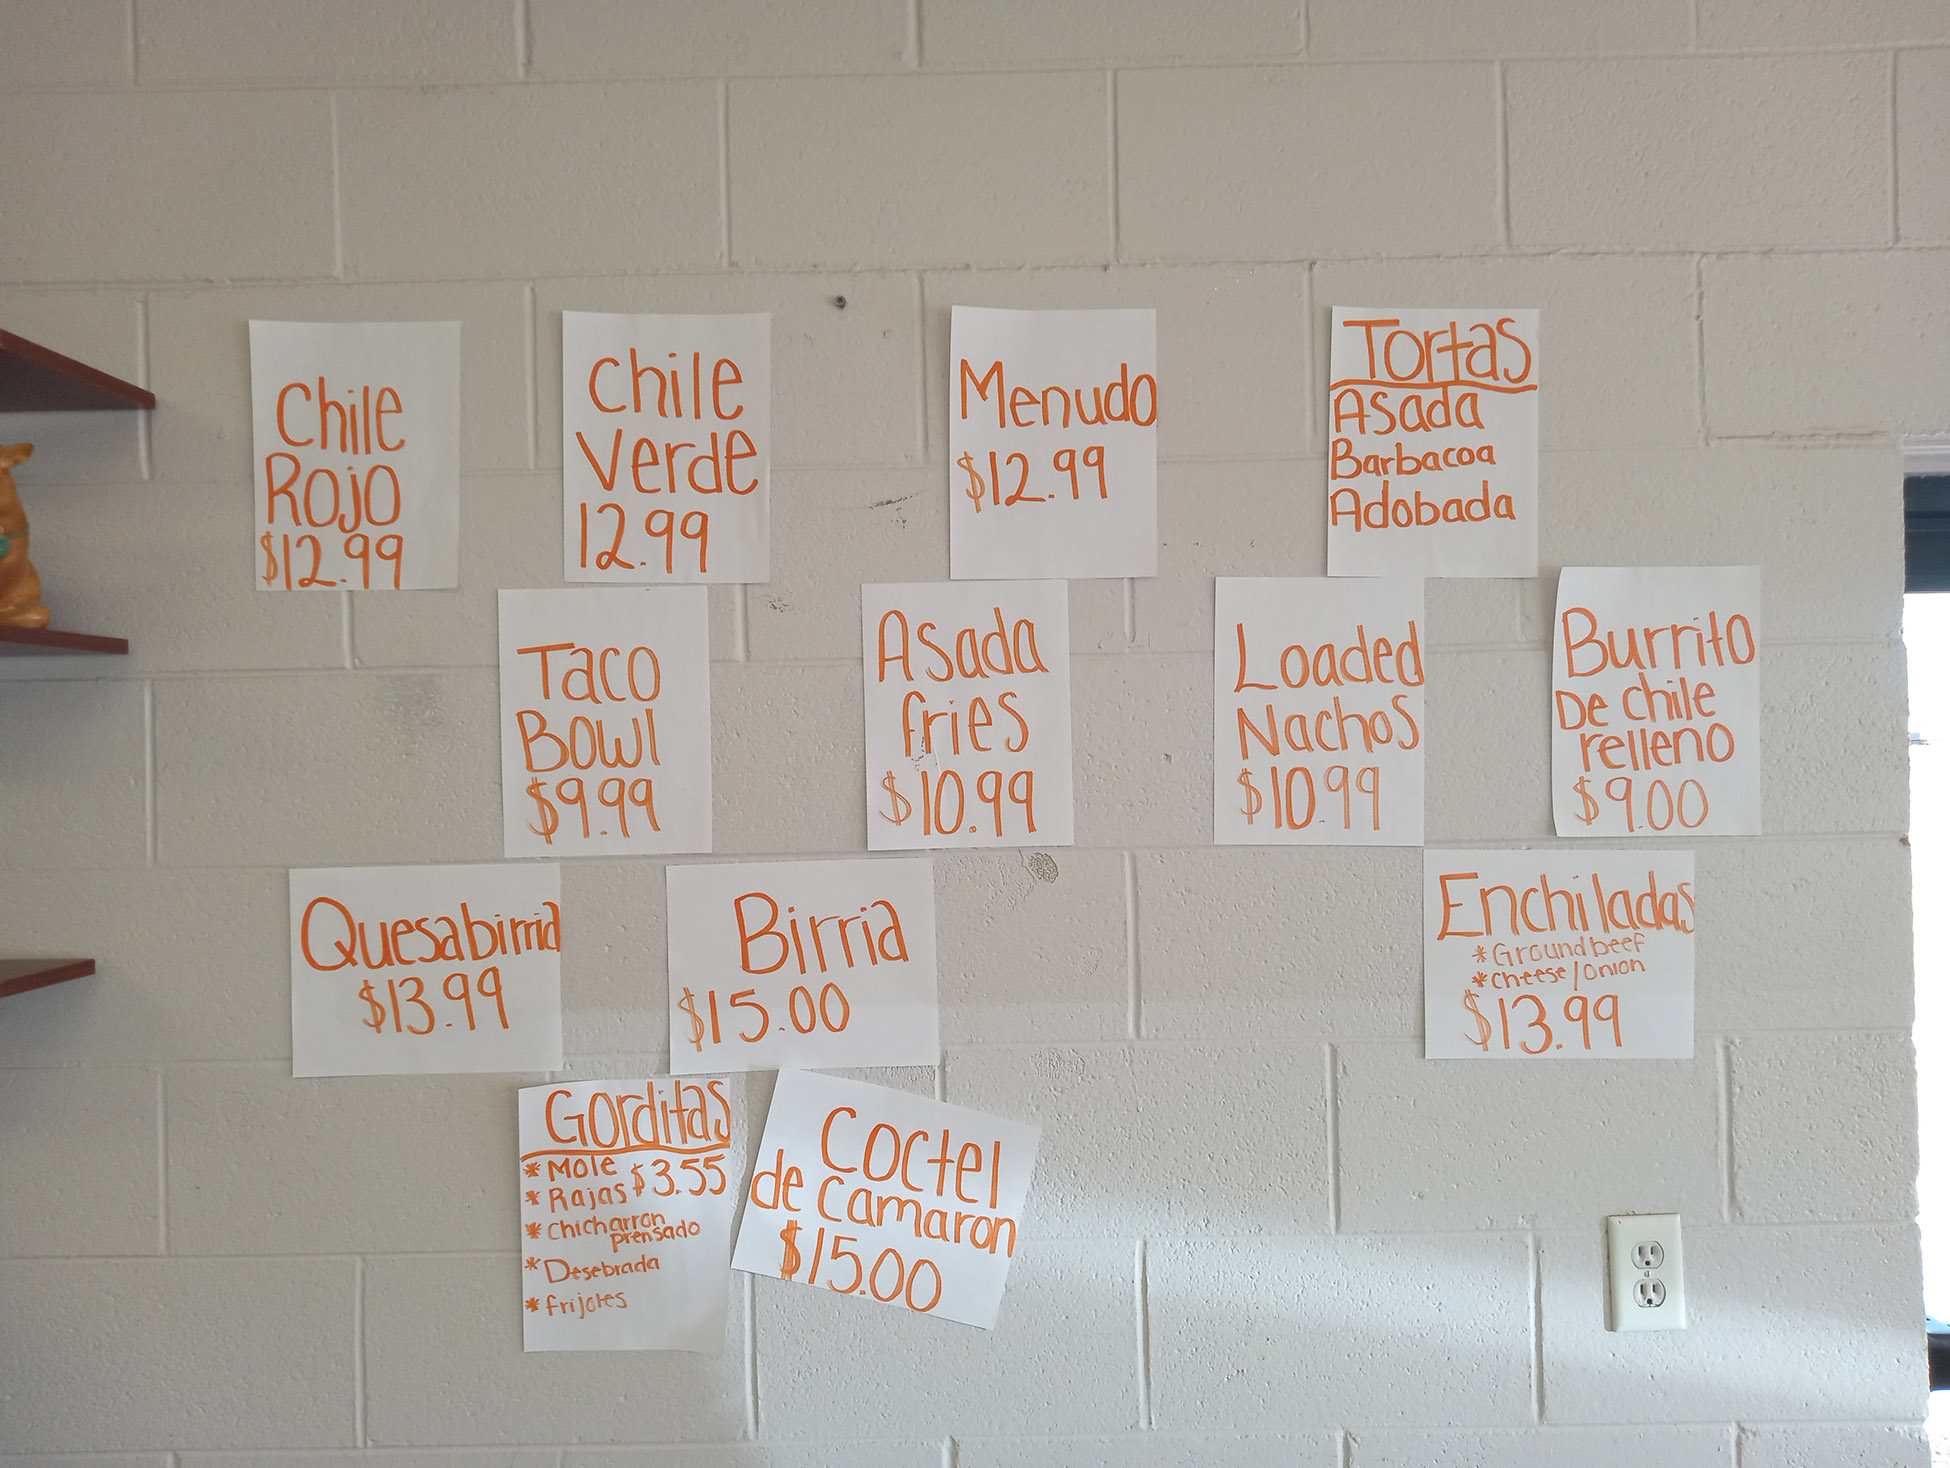 Chile
Rojo
$12.99
Chile
Verde
12.99
Menudo
$12.99
Tortas
Asada
Barbacoa
Adobada
Taco
Bowl
$9.99
Asada
fries
$10.99
Loaded
Nachos
$10.99
Burrito
De chile
relleno
$9.00
Quesabirria
$13.99
Birria
$15.00
Enchiladas
*Ground beef
*Cheese/onion
$13.99
Gorditas
* Mole $3.55
* Rajas
* Chicharron
prensado
* Desebrada
* frijoles
Coctel
de camaron
$15.00